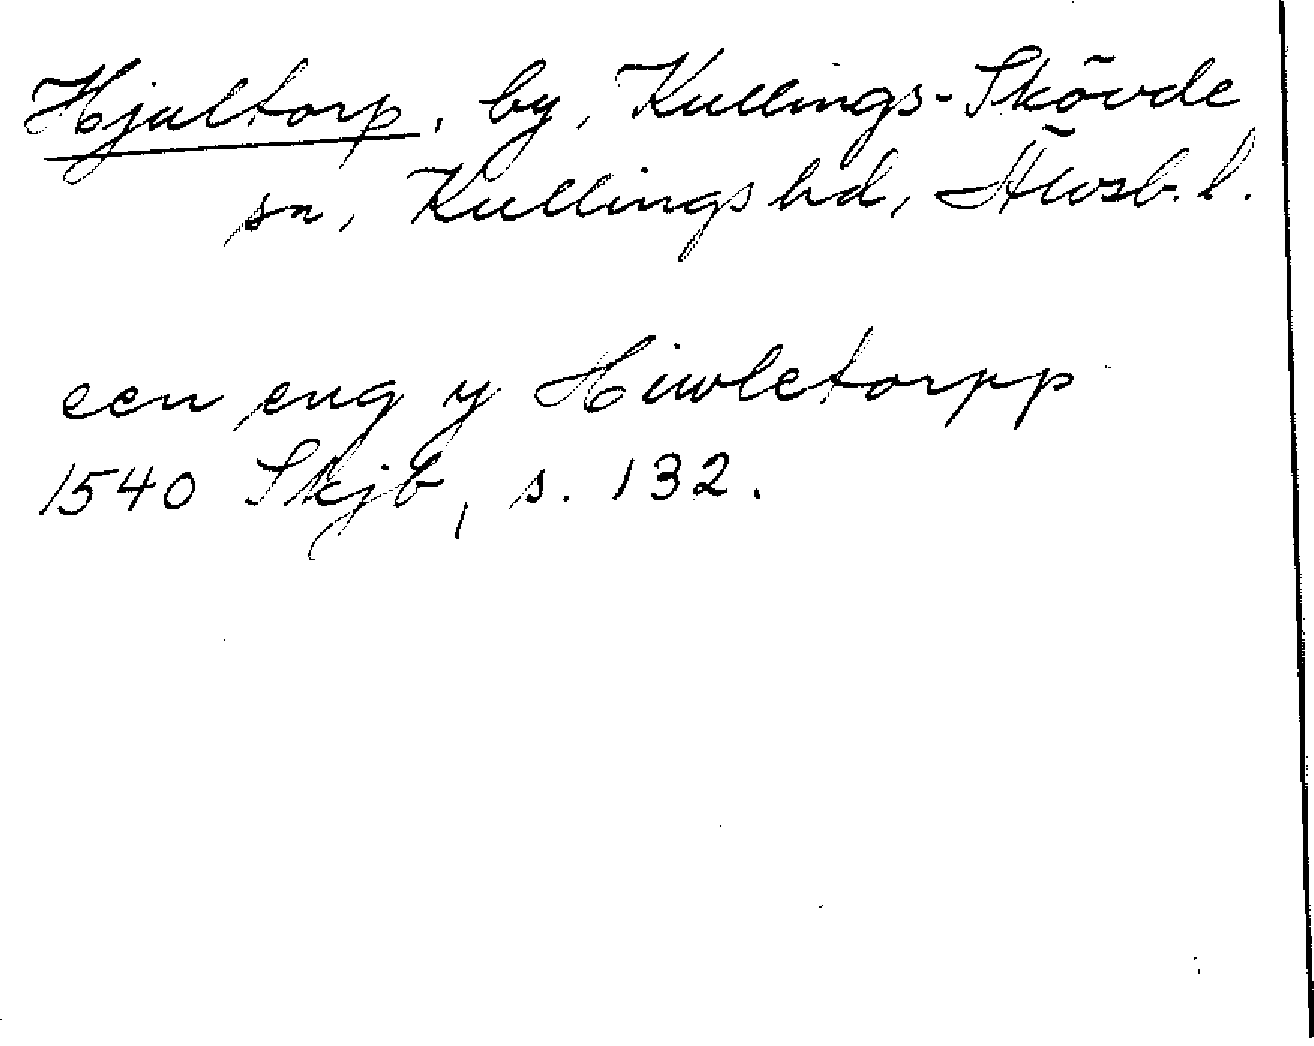 Hjultorp, by, Kullings-Skövde
sn, Kullings hd, Älvsb. l.
een eng y Hiwletorpp
1540 Skjb, s. 132.